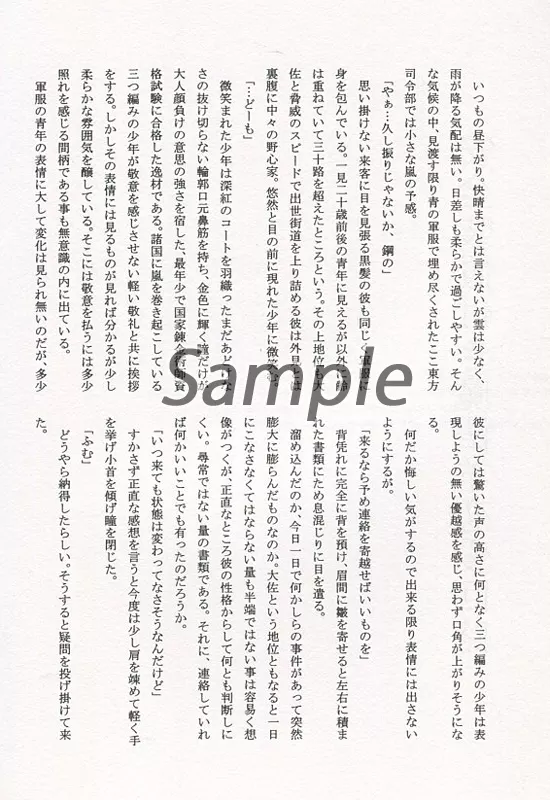 いつもの昼下がり。快晴までとは言えないが雲は少なく、
雨が降る気配は無い。日差しも柔らかで過ごしやすい。そん
な気候の中、見渡す限り青の軍服で埋め尽くされたここ東方
司令部では小さな嵐の予感。
「やぁ…久し振りじゃないか、鋼の」
思い掛けない来客に目を見張る黒髪の彼も同じく軍服に
身を包んでいる。一見二十歳前後の青年に見えるが以外に齢
は重ねていて三十路を超えたところという。その上地位も大
佐と脅威のスピードで出世街道を上り詰める彼は外見とは
裏腹に中々の野心家。悠然と目の前に現れた少年に微笑む。
「…どーも」
微笑まれた少年は深紅のコートを羽織ったまだあどけな
さの抜け切らない輪郭口元鼻筋を持ち、金色に輝く瞳だけが
大人顔負けの意思の強さを宿した、最年少で国家錬金術師資
格試験に合格した逸材である。諸国に嵐を巻き起こしている
三つ編みの少年が敬意を感じさせない軽い敬礼と共に挨拶
をする。しかしその表情には見るものが見れば分かるが少し
柔らかな雰囲気を醸している。そこには敬意を払うには多少
照れを感じる間柄である事も無意識の内に出ている。
軍服の青年の表情に大して変化は見られ無いのだが、多少
彼にしては驚いた声の高さに何となく三つ編みの少年は表
現しようの無い優越感を感じ、思わず口角が上がりそうにな
る。
何だか悔しい気がするので出来る限り表情には出さない
ようにするが。
「来るなら予め連絡を寄越せばいいものを」
背凭れに完全に背を預け、眉間に皺を寄せると左右に積ま
れた書類にため息混じりに目を遣る。
溜め込んだのか、今日一日で何かしらの事件があって突然
膨大に膨らんだものなのか。大佐という地位ともなると一日
にこなさなくてはならない量も半端ではない事は容易く想
像がつくが、正直なところ彼の性格からして何とも判断しに
くい。尋常ではない量の書類である。それに、連絡していれ
ば何かいいことでも有ったのだろうか。
「いつ来ても状態は変わってなさそうなんだけど」
すかさず正直な感想を言うと今度は少し肩を竦めて軽く手
を挙げ小首を傾げ瞳を閉じた。
「ふむ」
どうやら納得したらしい。そうすると疑問を投げ掛けて来
た。
Sample